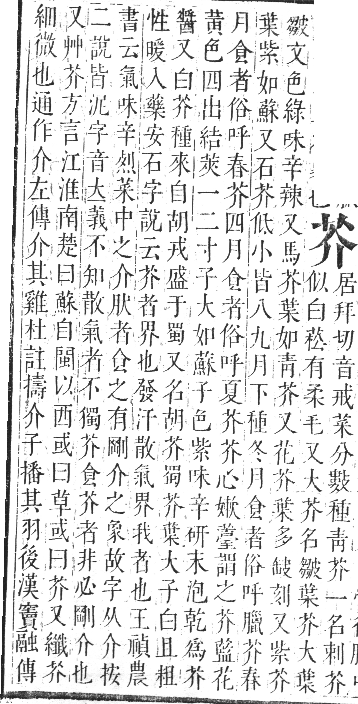 芥
居拜切音戒菜分數種靑芥一名刺芥
似白菘有柔毛又大芥名皺葉芥大葉
皺文色綠味辛辣又馬芥葉如靑芥又花芥葉多缺刻又紫芥
葉紫如蘇又石芥低小皆八九月下種冬月食者俗呼臘芥春
月食者俗呼春芥四月食者俗呼夏芥芥心嫰薹謂之芥藍花
黃色四出結莢一二寸子大如蘇子色紫味辛硏末泡乾爲芥
醬又白芥種來自胡戎盛于蜀又名胡芥蜀芥葉大子白且粗
性暖入藥安石字說云芥者界也發汗散氣界我者也王禎農
書云氣味辛烈菜中之介肰者食之有剛介之象故字从介按
二說皆泥字音大義不知散氣者不獨芥食芥者非必剛介也
又艸芥方言江淮南楚曰蘇自閩以西或曰草或曰芥又纖芥
細微也通作介左傳介其雞杜註擣介子播其羽後漢竇融傳